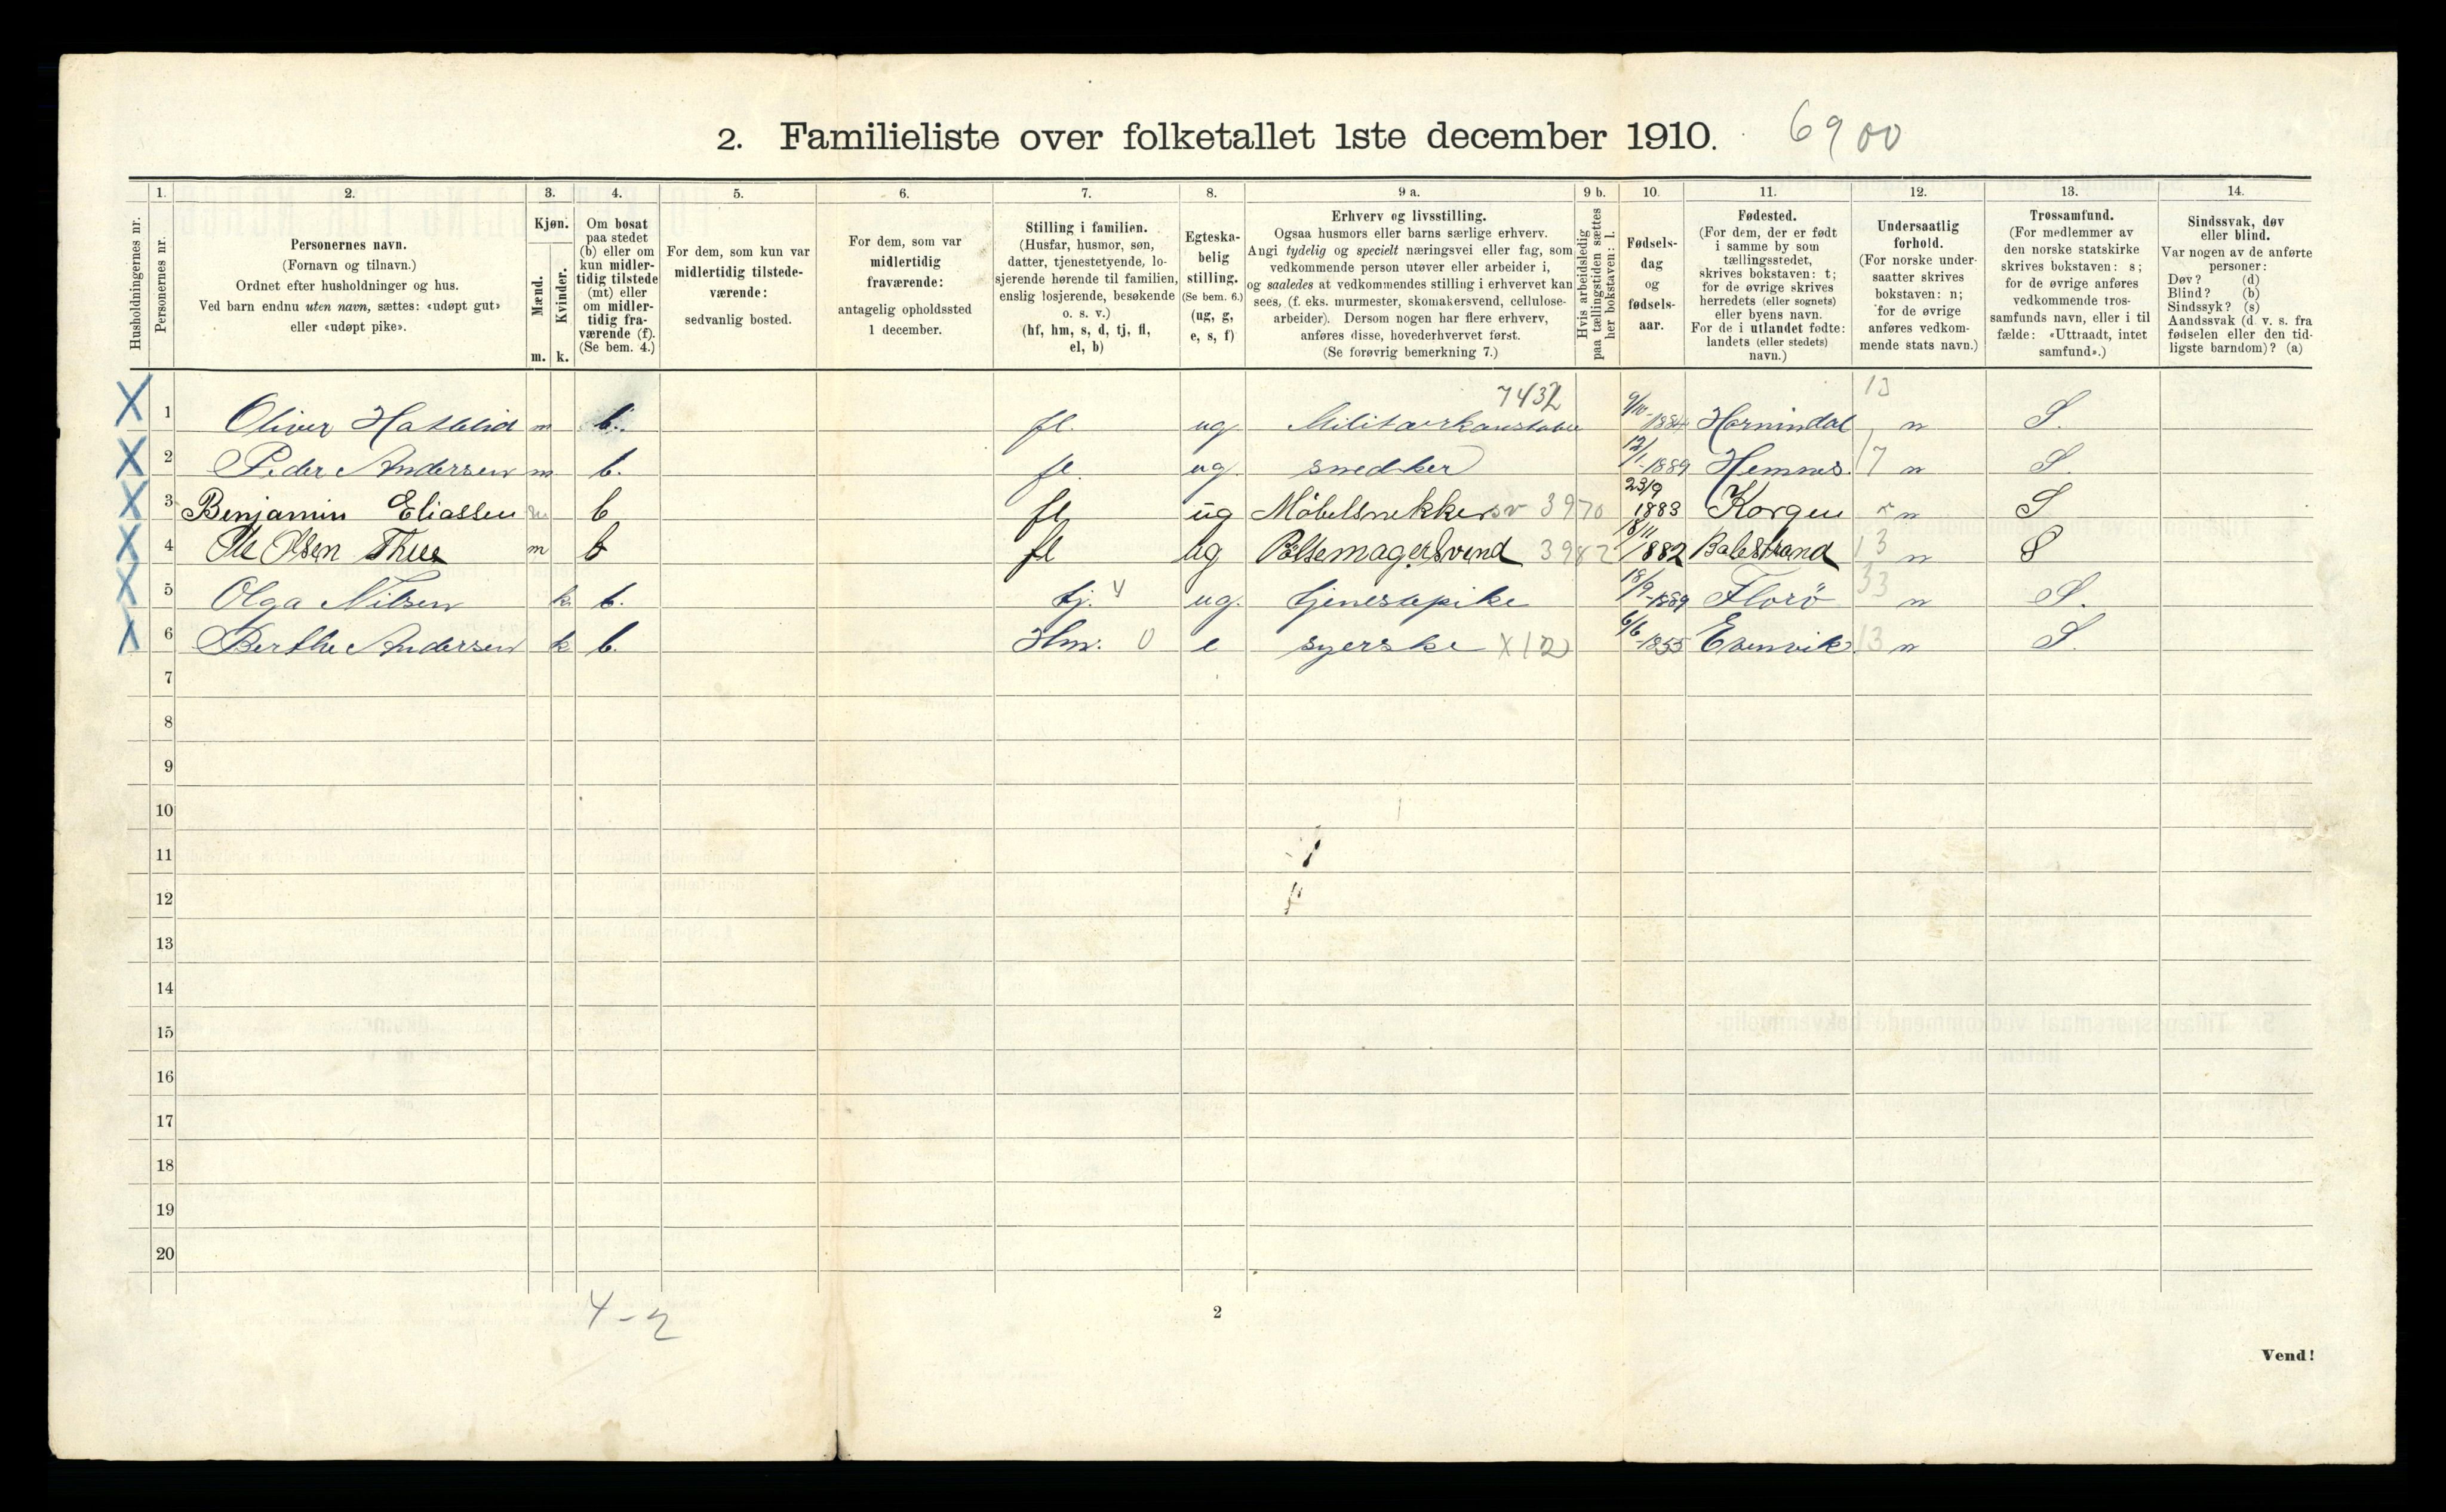 2. Familieliste over folketallet 1ste december 1910. 6900
Husholdningernes nr.
1. Personernes nr.
2. Personernes navn.
(Fornavn og tilnavn.)
Ordnet efter husholdninger og hus.
Ved barn endnu uten navn, sættes: «udøpt gut»
eller «udøpt pike».
3. Kjøn.
Mænd. m.
Kvinder. k.
4. Om bosat
paa stedet
(b) eller om
kun midler-
tidig tilstede
(mt) eller
om midler-
tidig fra-
værende (f).
(Se bem. 4.)
5. For dem, som kun var
midlertidig tilstede-
værende:
sedvanlig bosted.
6. For dem, som var
midlertidig
fraværende:
antagelig opholdssted
1 december.
7. Stilling i familien.
(Husfar, husmor, søn,
datter, tjenestetyende, lo-
sjerende hørende til familien,
enslig losjerende, besøkende
o. s. v.)
(hf, hm, s, d, tj, fl,
el, b)
8. Egteska-
belig
stilling.
(Se bem. 6.)
(ug, g,
e, s, f)
9 a. Erhverv og livsstilling.
Ogsaa husmors eller barns særlige erhverv.
Angi tydelig og specielt næringsvei eller fag, som
vedkommende person utøver eller arbeider i,
og saaledes at vedkommendes stilling i erhvervet kan
sees, (f. eks. murmester, skomakersvend, cellulose-
arbeider). Dersom nogen har flere erhverv,
anføres disse, hovederhvervet først.
(Se forøvrig bemerkning 7.)
9 b. Hvis arbeidsledig
paa tællingstiden sættes
her bokstaven: l.
10. Fødsels-
dag
og
fødsels-
aar.
11. Fødested.
(For dem, der er født
i samme by som
tællingsstedet,
skrives bokstaven: t;
for de øvrige skrives
herredets (eller sognets)
eller byens navn.
For de i utlandet fødte:
landets (eller stedets)
navn.)
12. Undersaatlig
forhold.
(For norske under-
saatter skrives
bokstaven: n;
for de øvrige
anføres vedkom-
mende stats navn.)
13. Trossamfund.
(For medlemmer av
den norske statskirke
skrives bokstaven: s;
for de øvrige anføres
vedkommende tros-
samfunds navn, eller i til
fælde: «Uttraadt, intet
samfund».)
14. Sindssvak, døv
eller blind.
Var nogen av de anførte
personer:
Døv? (d)
Blind? (b)
Sindssyk? (s)
Aandssvak (d. v. s. fra
fødselen eller den tid-
ligste barndom)? (a)
7432 13
X 1 Oliver m b. fl. ug. 9/10-1884 Hornindal n S.
X 2 Peder Andersen m b. fl. ug. snedker 12/1-1889 Hemnes. 17 n S.
X 3 Benjamin Eliassen m b fl ug Möbelsnekkersv 3970 23/9 1883 Korgen n S
X 4 Ole Olsen m b fl ug Pølsemagersvend 3982 18/11 1882 Balestrand 13 n S
X 5 Olga Nilsen k b. tj. 4 ug. tjenestepike 18/9-1889 Florö 33 n S.
X 6 Berthe Andersen k b. Hm. 0 e syerske X12 6/6-1855 Evenvik. 13 n S.
7
8
9
10
11
12
13
14
15
16
17
18
19
20
4-2
2
Vend!